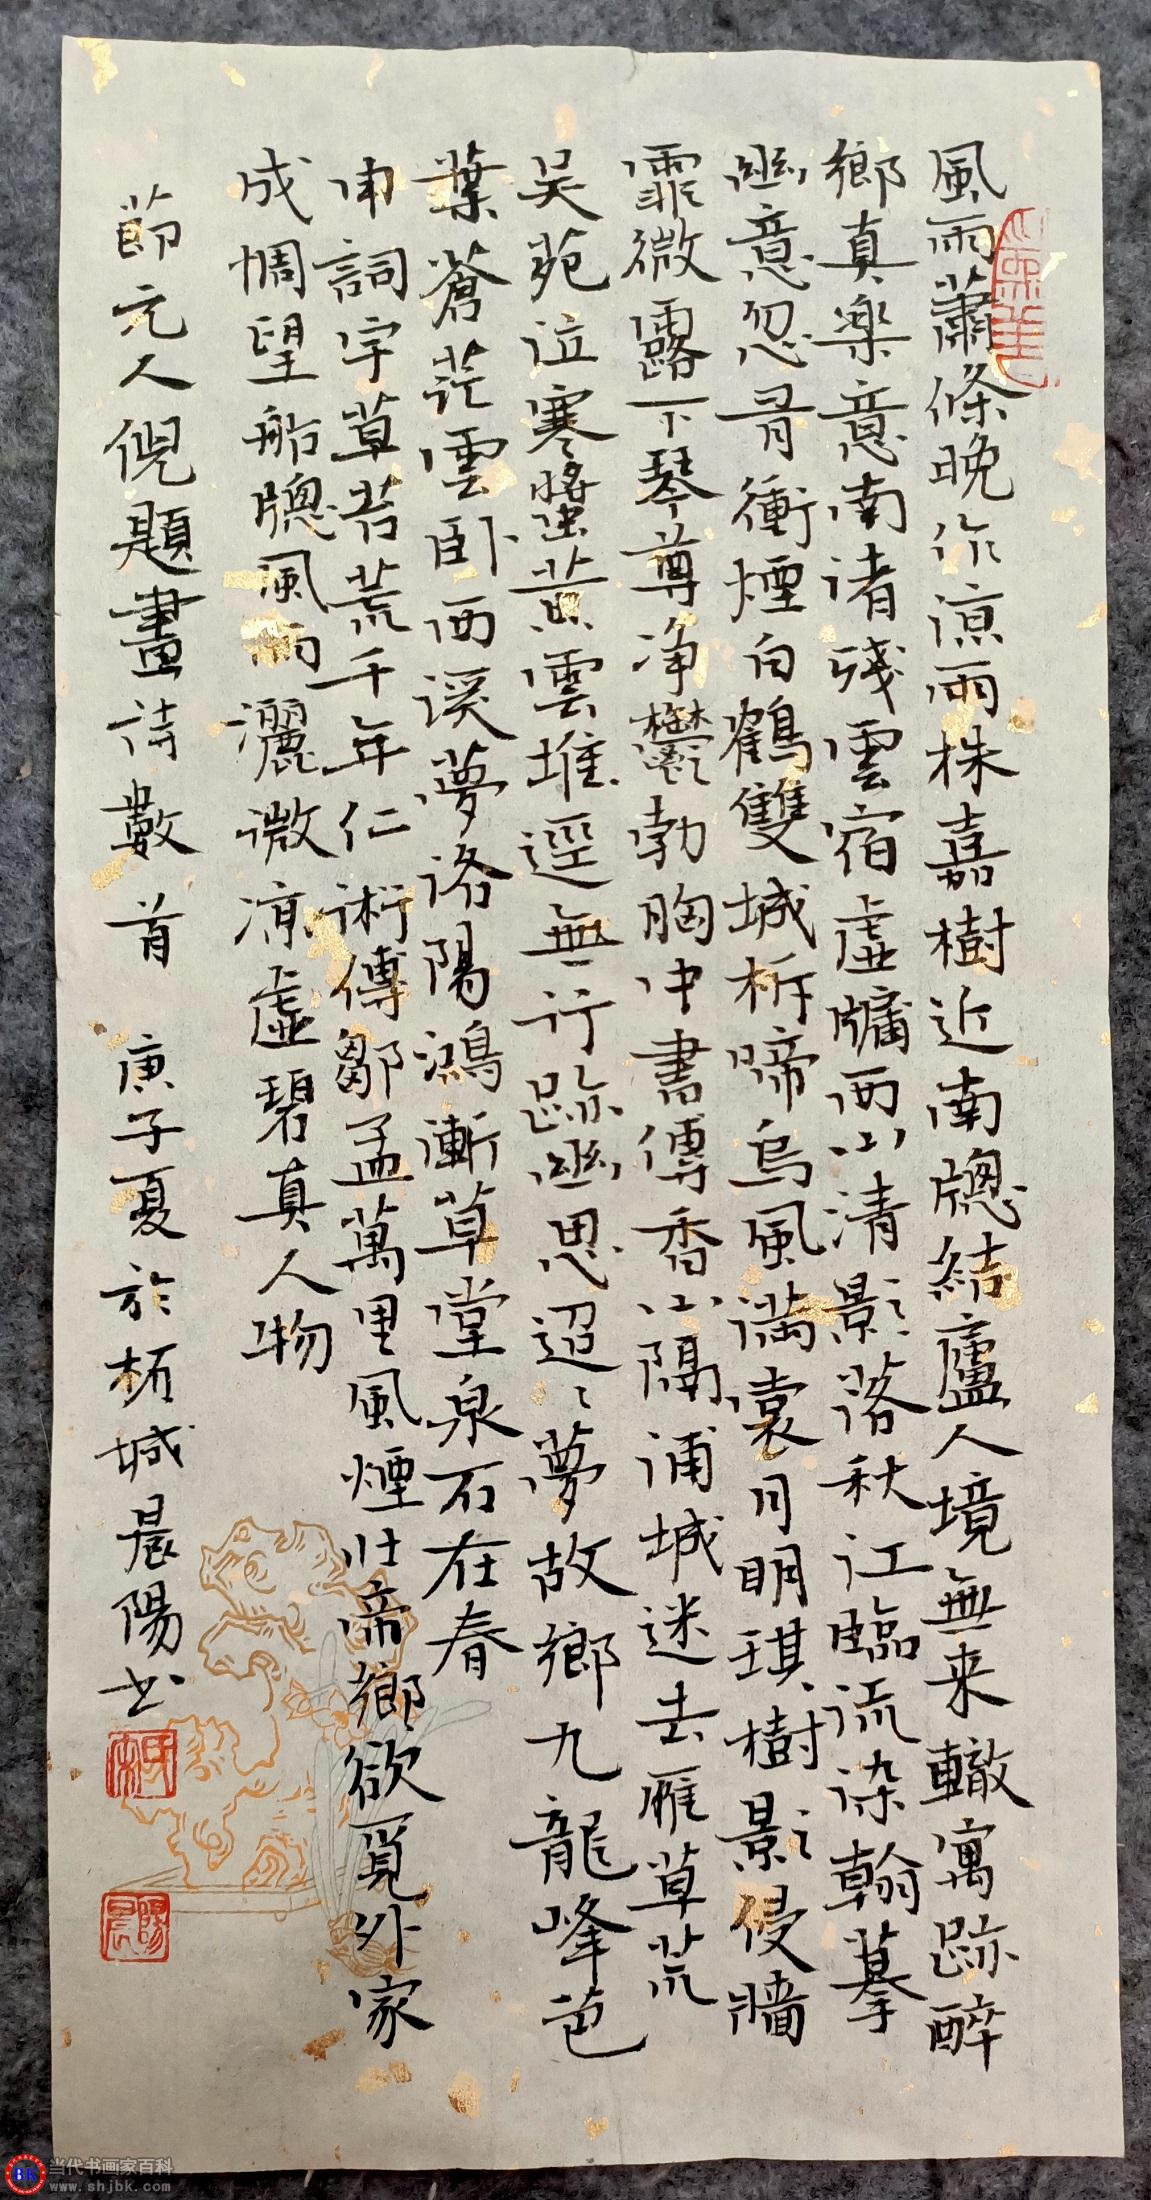 風雨蕭條晚作涼兩株嘉樹近南牕結廬人境無来轍寓跡醉
鄉真樂意南渚殘雲宿虛牖西山清影落秋江臨流染翰摹
幽意忽有衝煙白鶴雙城柝啼烏風滿袁月明琪樹影侵牆
霏微露下琴尊净鬱勃胸中書傳香小隔浦城迷去雁草荒
吴苑泣寒螿黄雲堆逕無行跡幽思迢〻夢故鄉九龍峰色
葉蒼茫雲卧西溪夢洛陽鴻漸草堂泉石在春
申詞宇草苔荒千年仁術傳鄒孟萬里風煙壯帝鄉欲覓外家
成惆望船牕風雨灑微涼虛碧真人物
節元人倪題畫詩數首 庚子夏於柘城晨陽书
晨陽
当代书画家百科
www.shjbk.com
BK